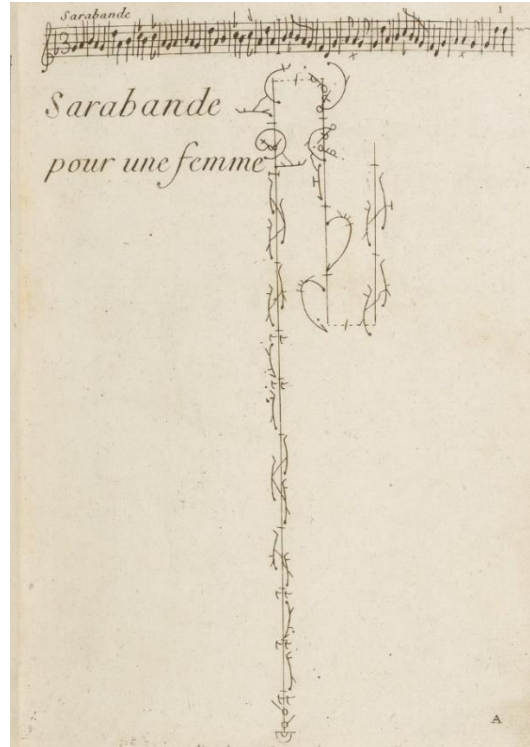 Sarabande
1
Sarabande
pour une femme
A